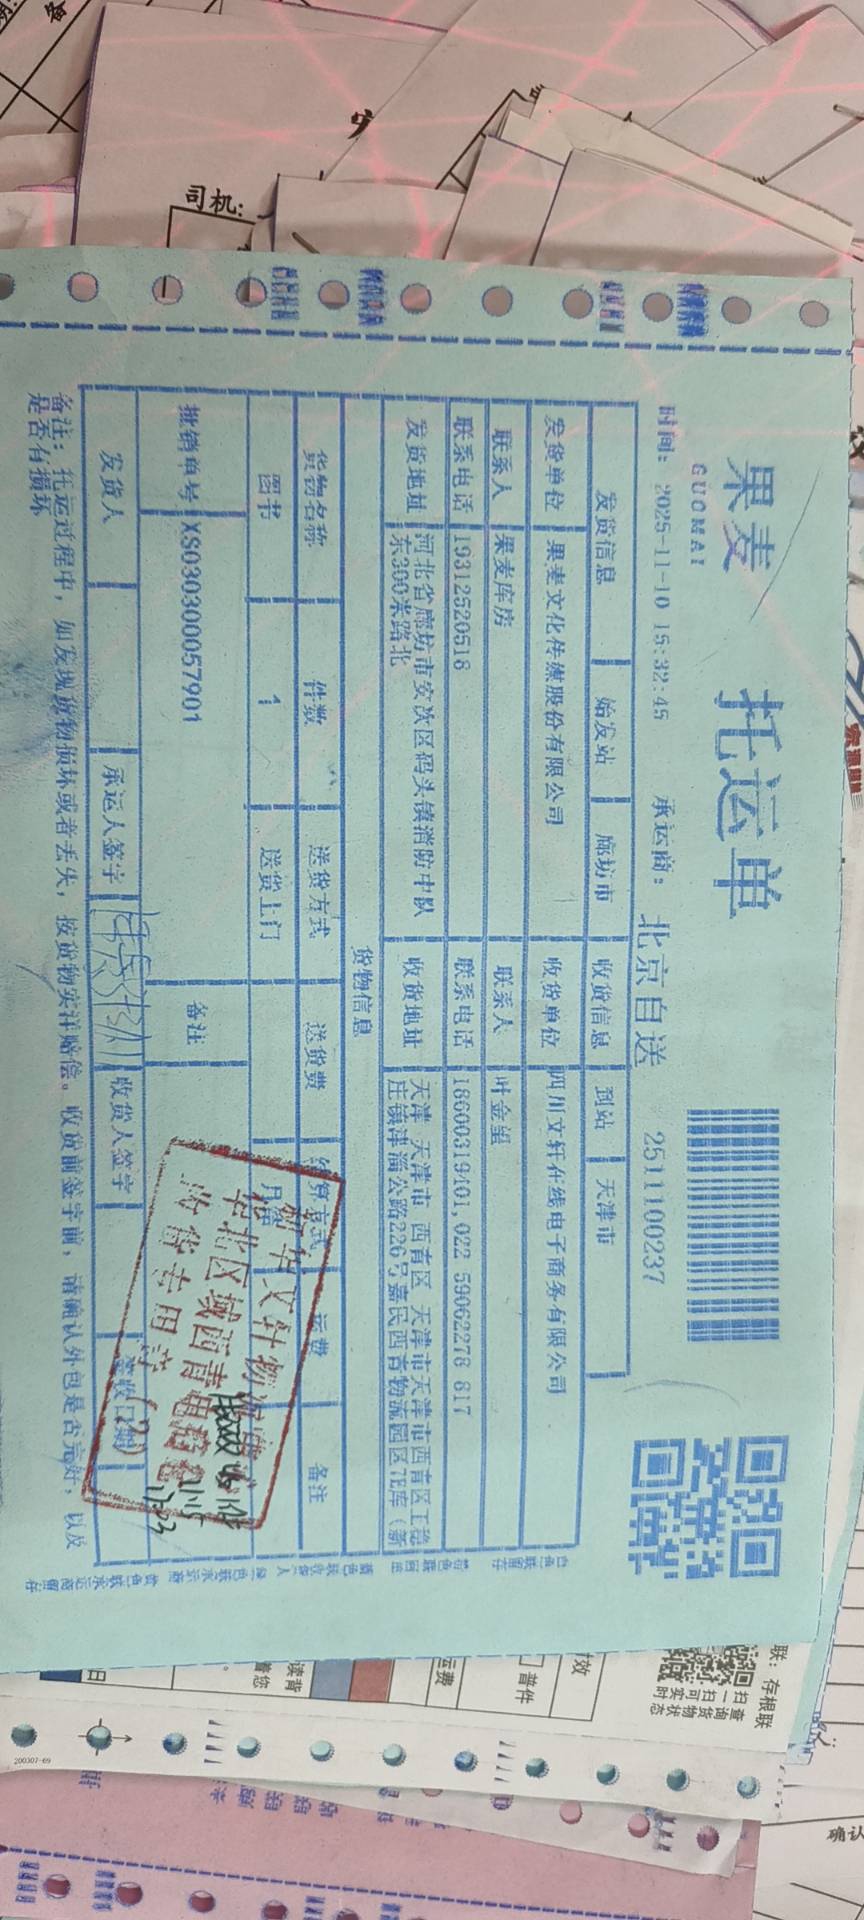 果麦
GUOMAI
托运单
时间: 2025-11-10 15:32:45 承运商: 北京自送 2511100237
发货信息 始发站 廊坊市 收货信息 到站 天津市
发货单位 果麦文化传媒股份有限公司 收货单位 四川文轩在线电子商务有限公司
联系人 果麦库房 联系人 叶金星
联系电话 19312520518 联系电话 18600319401,022 59062278 817
发货地址 河北省廊坊市安次区码头镇消防中队
东300米路北
收货地址 天津 天津市 西青区 天津市天津市西青区王稳
庄镇津淄公路226号嘉民西青物流园区7E库（新
货物信息
货物名称 件数 送货方式 送货费 结算方式 运费 备注
图书 1 送货上门 月结
批销单号 XS030300057901 备注
发货人 承运人签字 收货人签字 签收日期
备注: 托运过程中，如发现货物损坏或者丢失，按货物实洋赔偿。收货前签字前，请确认外包是否完好，以及
是否有损坏
华北区域西青电商仓
收货专用章
(2)
白色联留存
粉色联回库
蓝色联收货人
绿色联承运商
黄色联承运商留存
司机:
联: 存根联
扫一扫可实时
查询货物状态
时效
普件
运费
读背
着您
日
200307-69
确认